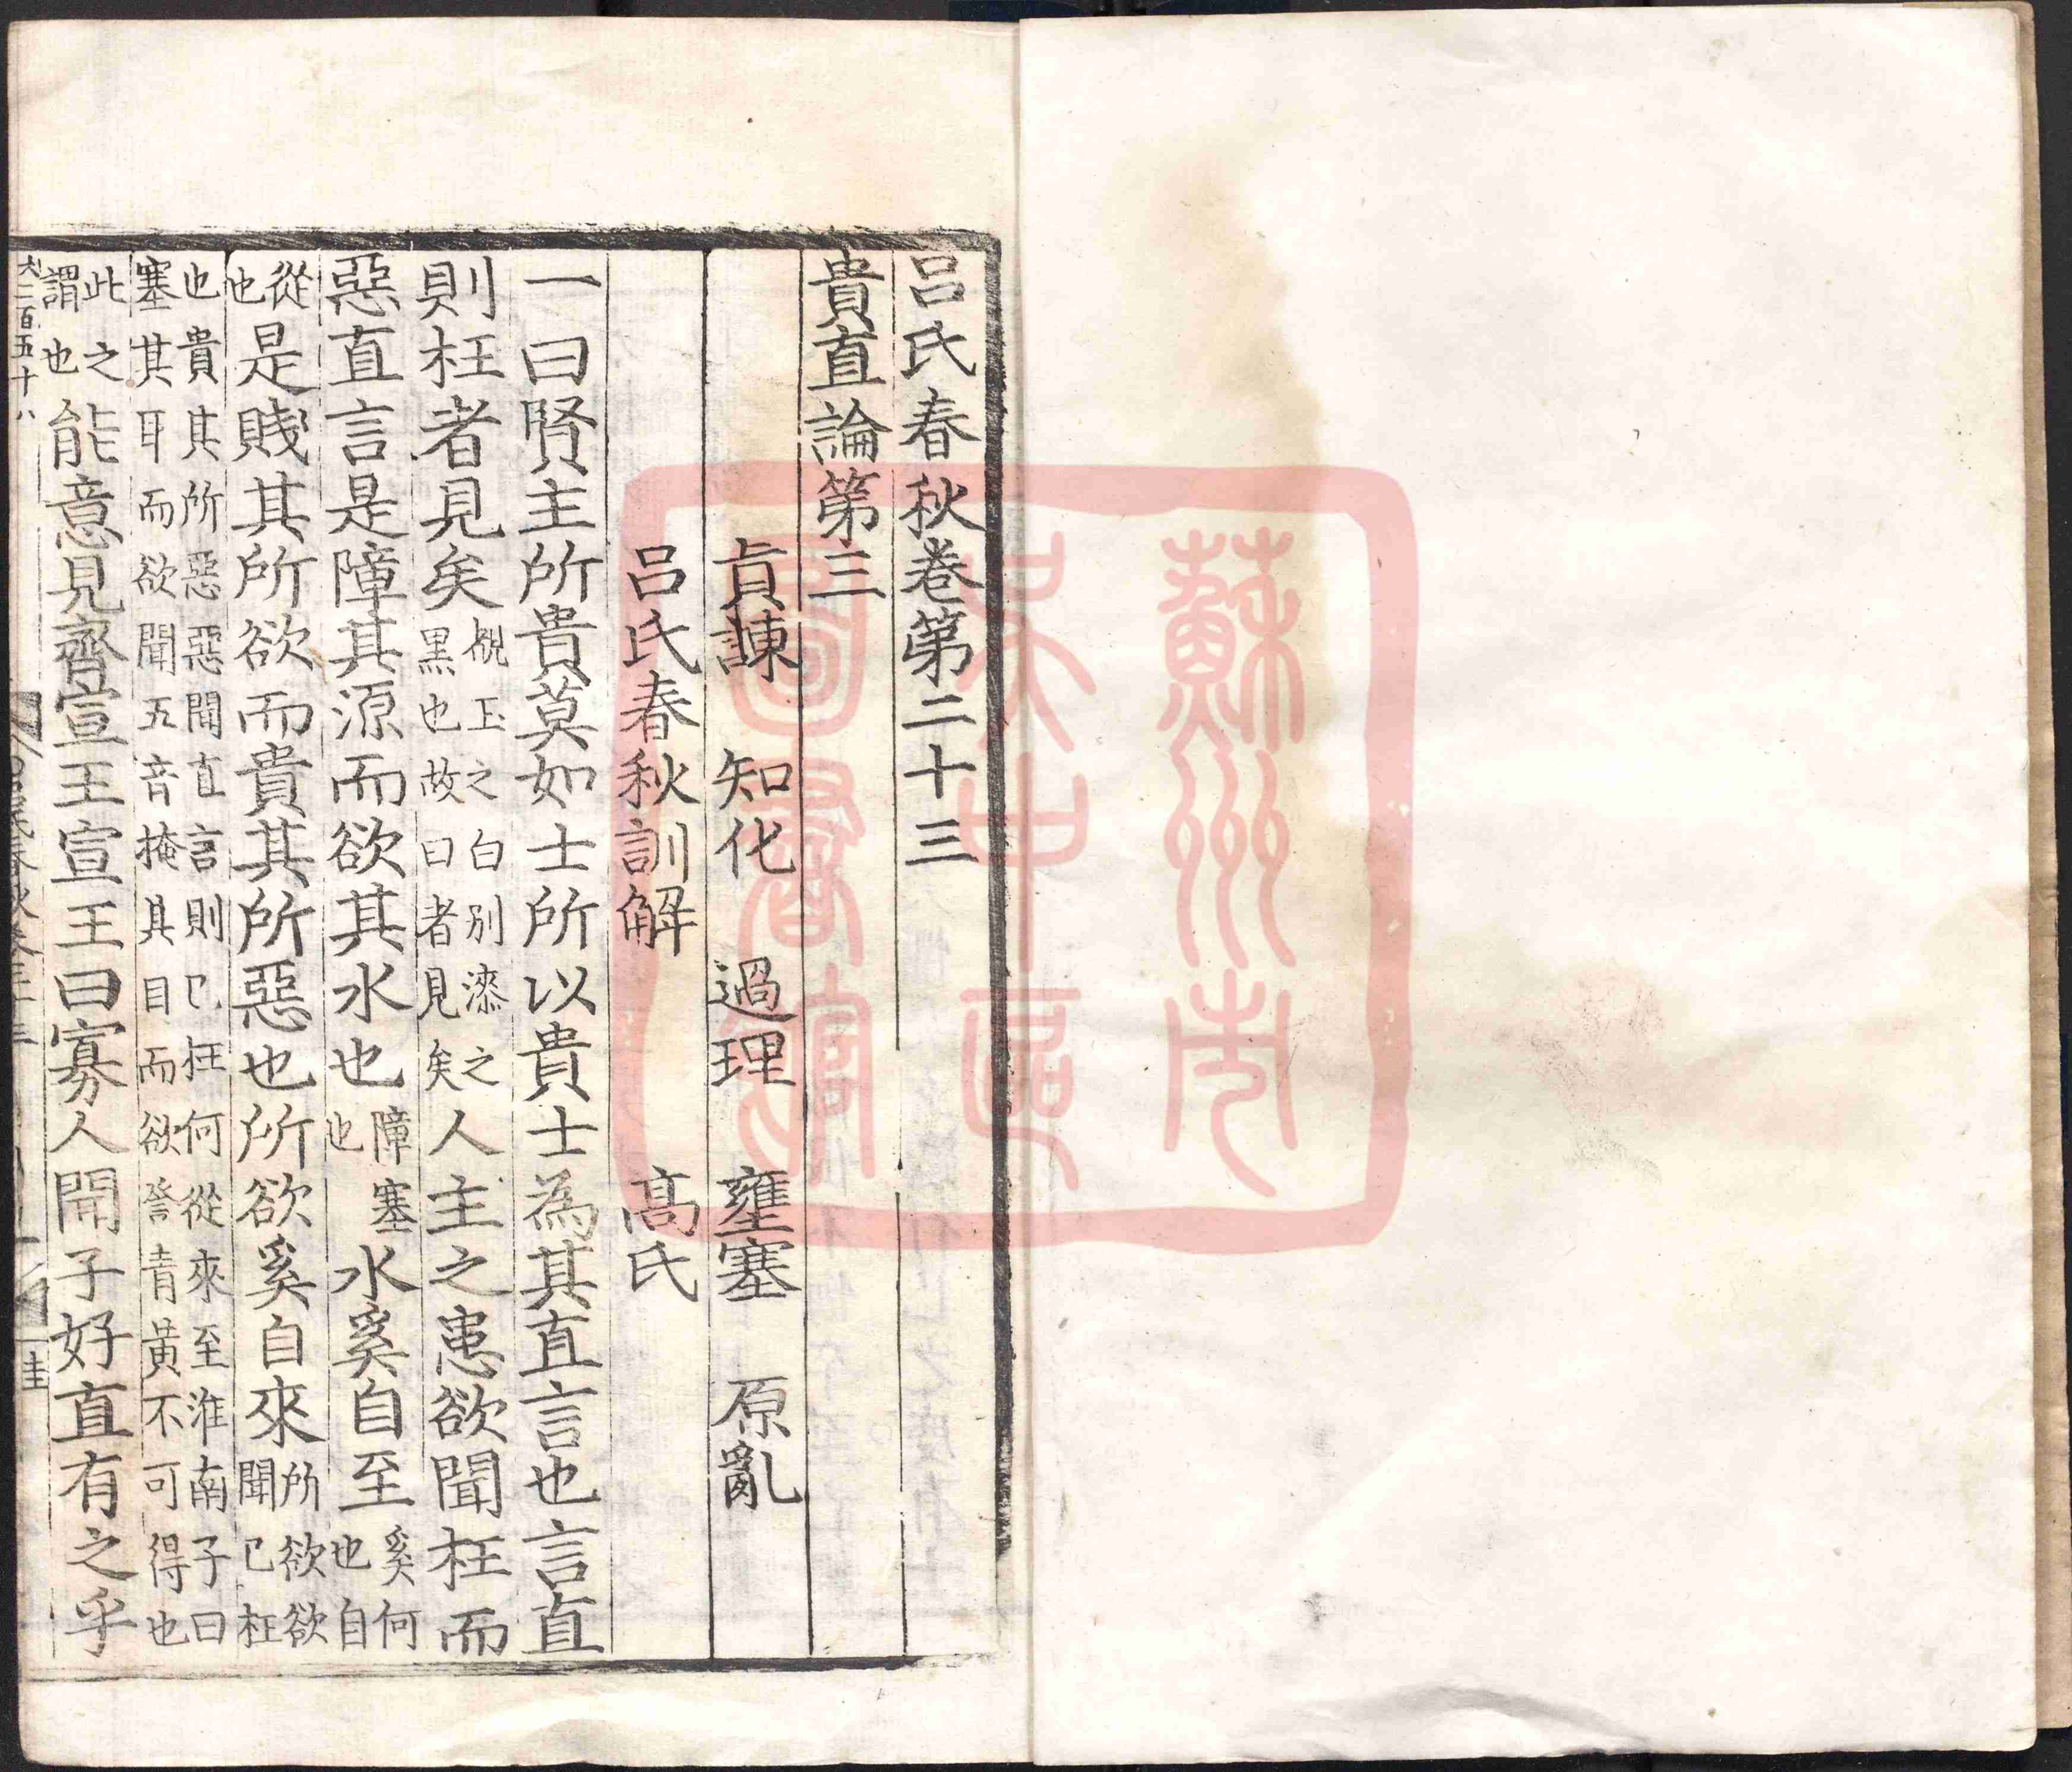 呂氏春秋卷第二十三
貴直論第三
貞諫　知化　過理　壅塞　原亂
呂氏春秋訓解　高氏
一曰賢主所貴莫如士所以貴士為其直言也言直
則枉者見矣覩玉之白別漆之黑也故曰者見矣人主之患欲聞枉而
惡直言是障其源而欲其水也障塞也水奚自至奚何也自
從也是賤其所欲而貴其所惡也所欲奚自來所欲欲聞已枉
也貴其所惡惡聞直言則已枉何從來至淮南子曰
塞其耳而欲聞五音掩其目而欲詧青黃不可得也
此之謂也能意見齊宣王宣王曰寡人聞子好直有之乎
大二百五十八
呂氏春秋卷二十三
一
圭
蘇州市
吳中區
圖書館